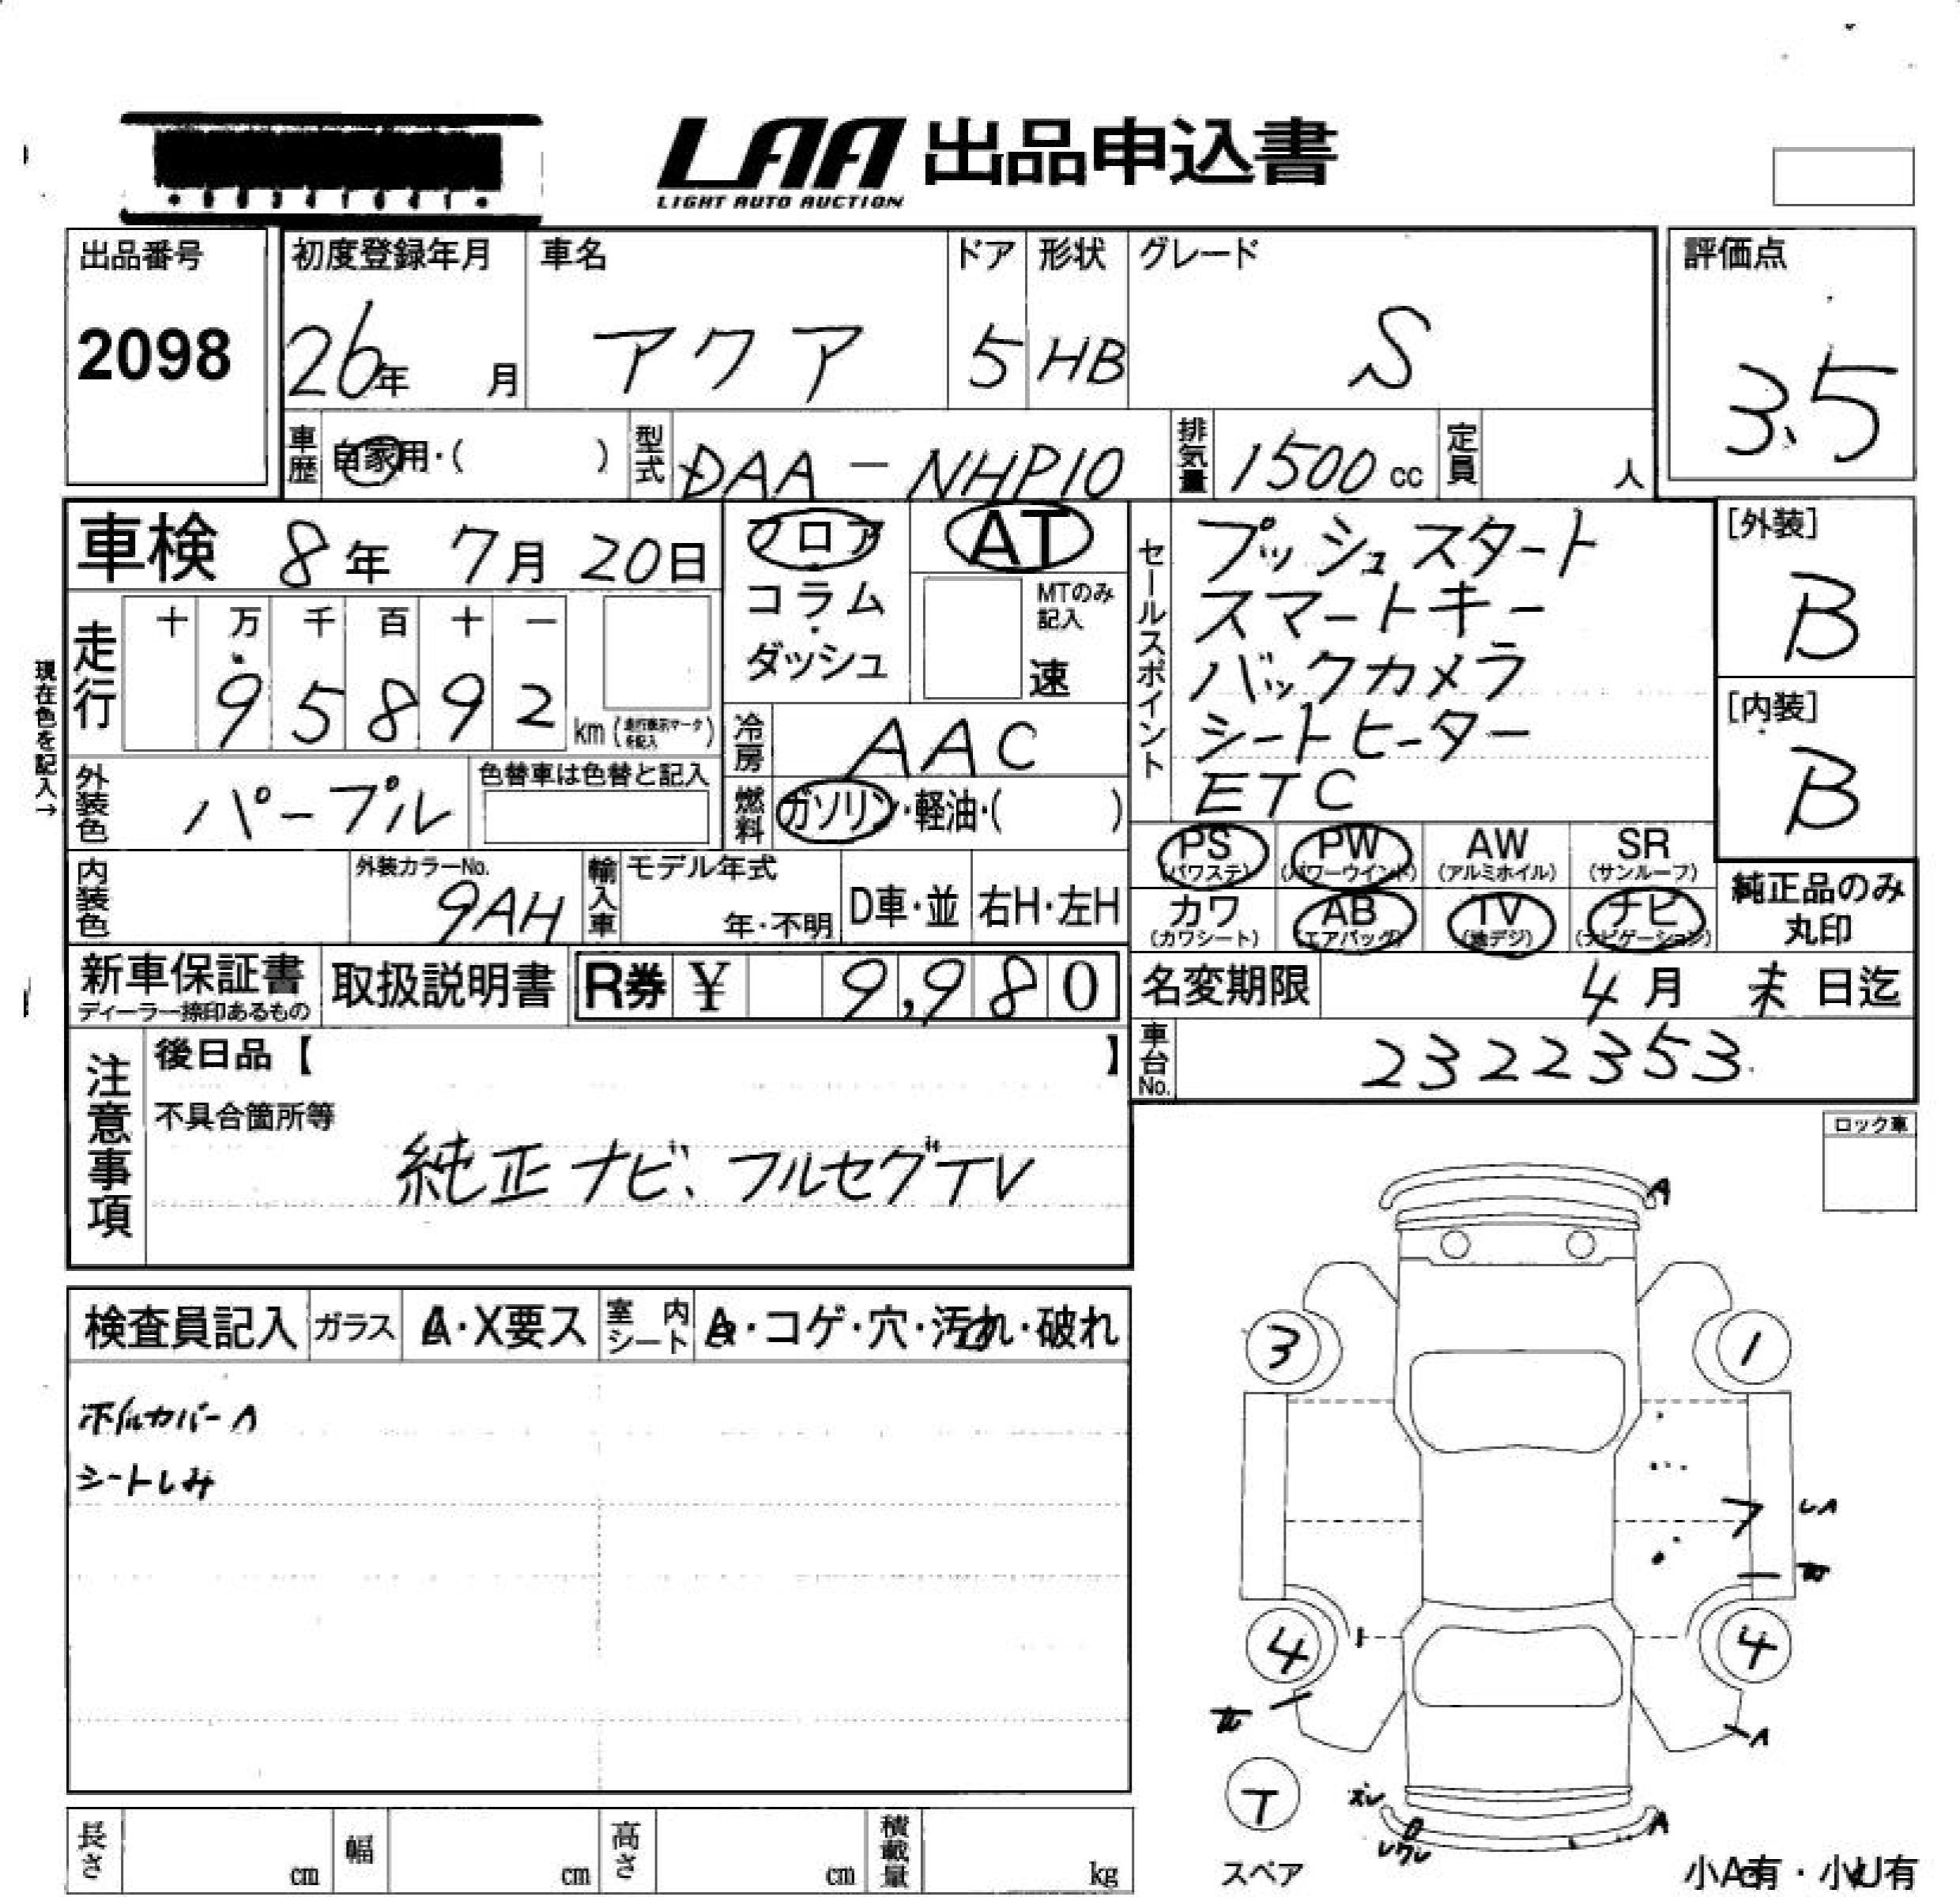 LAA 出品申込書
LIGHT AUTO AUCTION
出品番号
2098
初度登録年月
26年 月
車名
アクア
ドア
5
形状
HB
グレード
S
評価点
3.5
車歴
自家用・( )
型式
DAA-NHP10
排気量
1500cc
定員
人
車検 8年 7月 20日
現在色を記入→
走行
十 万 千 百 十 一
9 5 8 9 2
km(走行表示マークを記入)
フロア
コラム
・
ダッシュ
AT
MTのみ記入
速
冷房
AAC
燃料
ガソリン・軽油・( )
セールスポイント
プッシュスタート
スマートキー
バックカメラ
シートヒーター
ETC
[外装]
B
[内装]
B
外装色
パープル
色替車は色替と記入
内装色
外装カラーNo.
9AH
輸入車
モデル年式
年・不明
D車・並
右H・左H
PS (パワステ)
PW (パワーウインド)
AW (アルミホイル)
SR (サンルーフ)
カワ (カワシート)
AB (エアバッグ)
TV (地デジ)
ナビ (ナビゲーション)
純正品のみ
丸印
新車保証書
ディーラー捺印あるもの
取扱説明書
R券 ¥ 9,980
名変期限 4月 末 日迄
車台No.
2322353
注意事項
後日品【 】
不具合箇所等
純正ナビ、フルセグTV
ロック車
検査員記入
ガラス
A・X要ス
室内シート
A・コゲ・穴・汚れ・破れ
ホイルカバーA
シートしみ
A
3
1
フ
4
4
A
T
A
スペア
小A有・小U有
長さ cm
幅 cm
高さ cm
積載量 kg